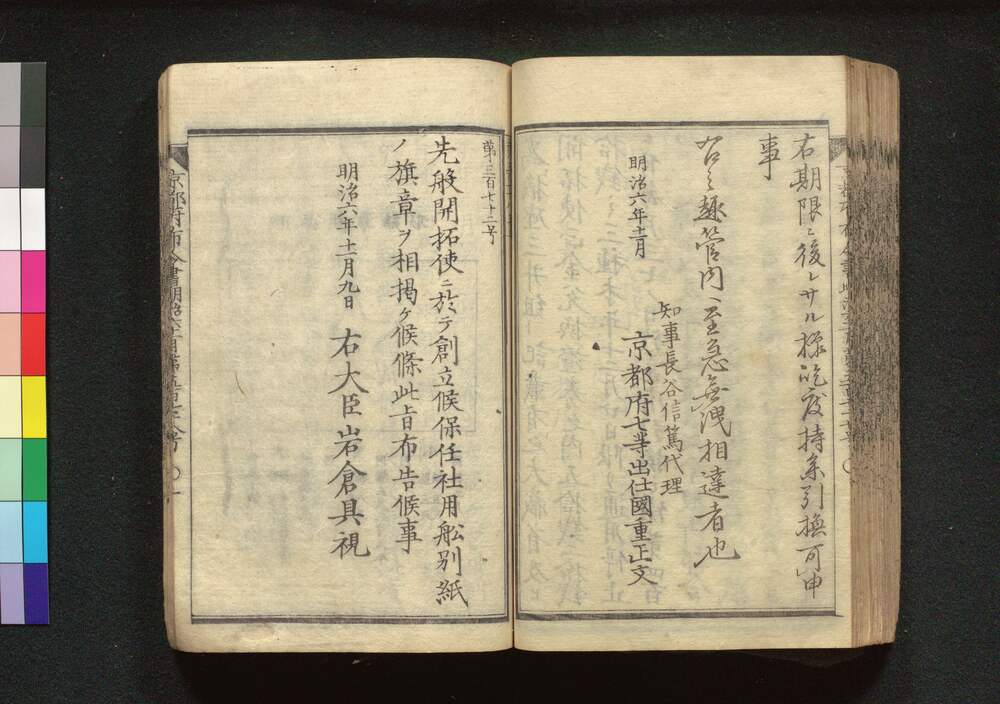 右期限ニ後レサル様屹度持参引換可申
事
右之趣管内ヘ至急無洩相達者也
明治六年十一月
知事長谷信篤代理
京都府七等出仕國重正文
第三百七十二号
先般開拓使ニ於テ創立候保任社用舩別紙
ノ旗章ヲ相掲ケ候條此旨布告候事
明治六年十一月九日
右大臣岩倉具視